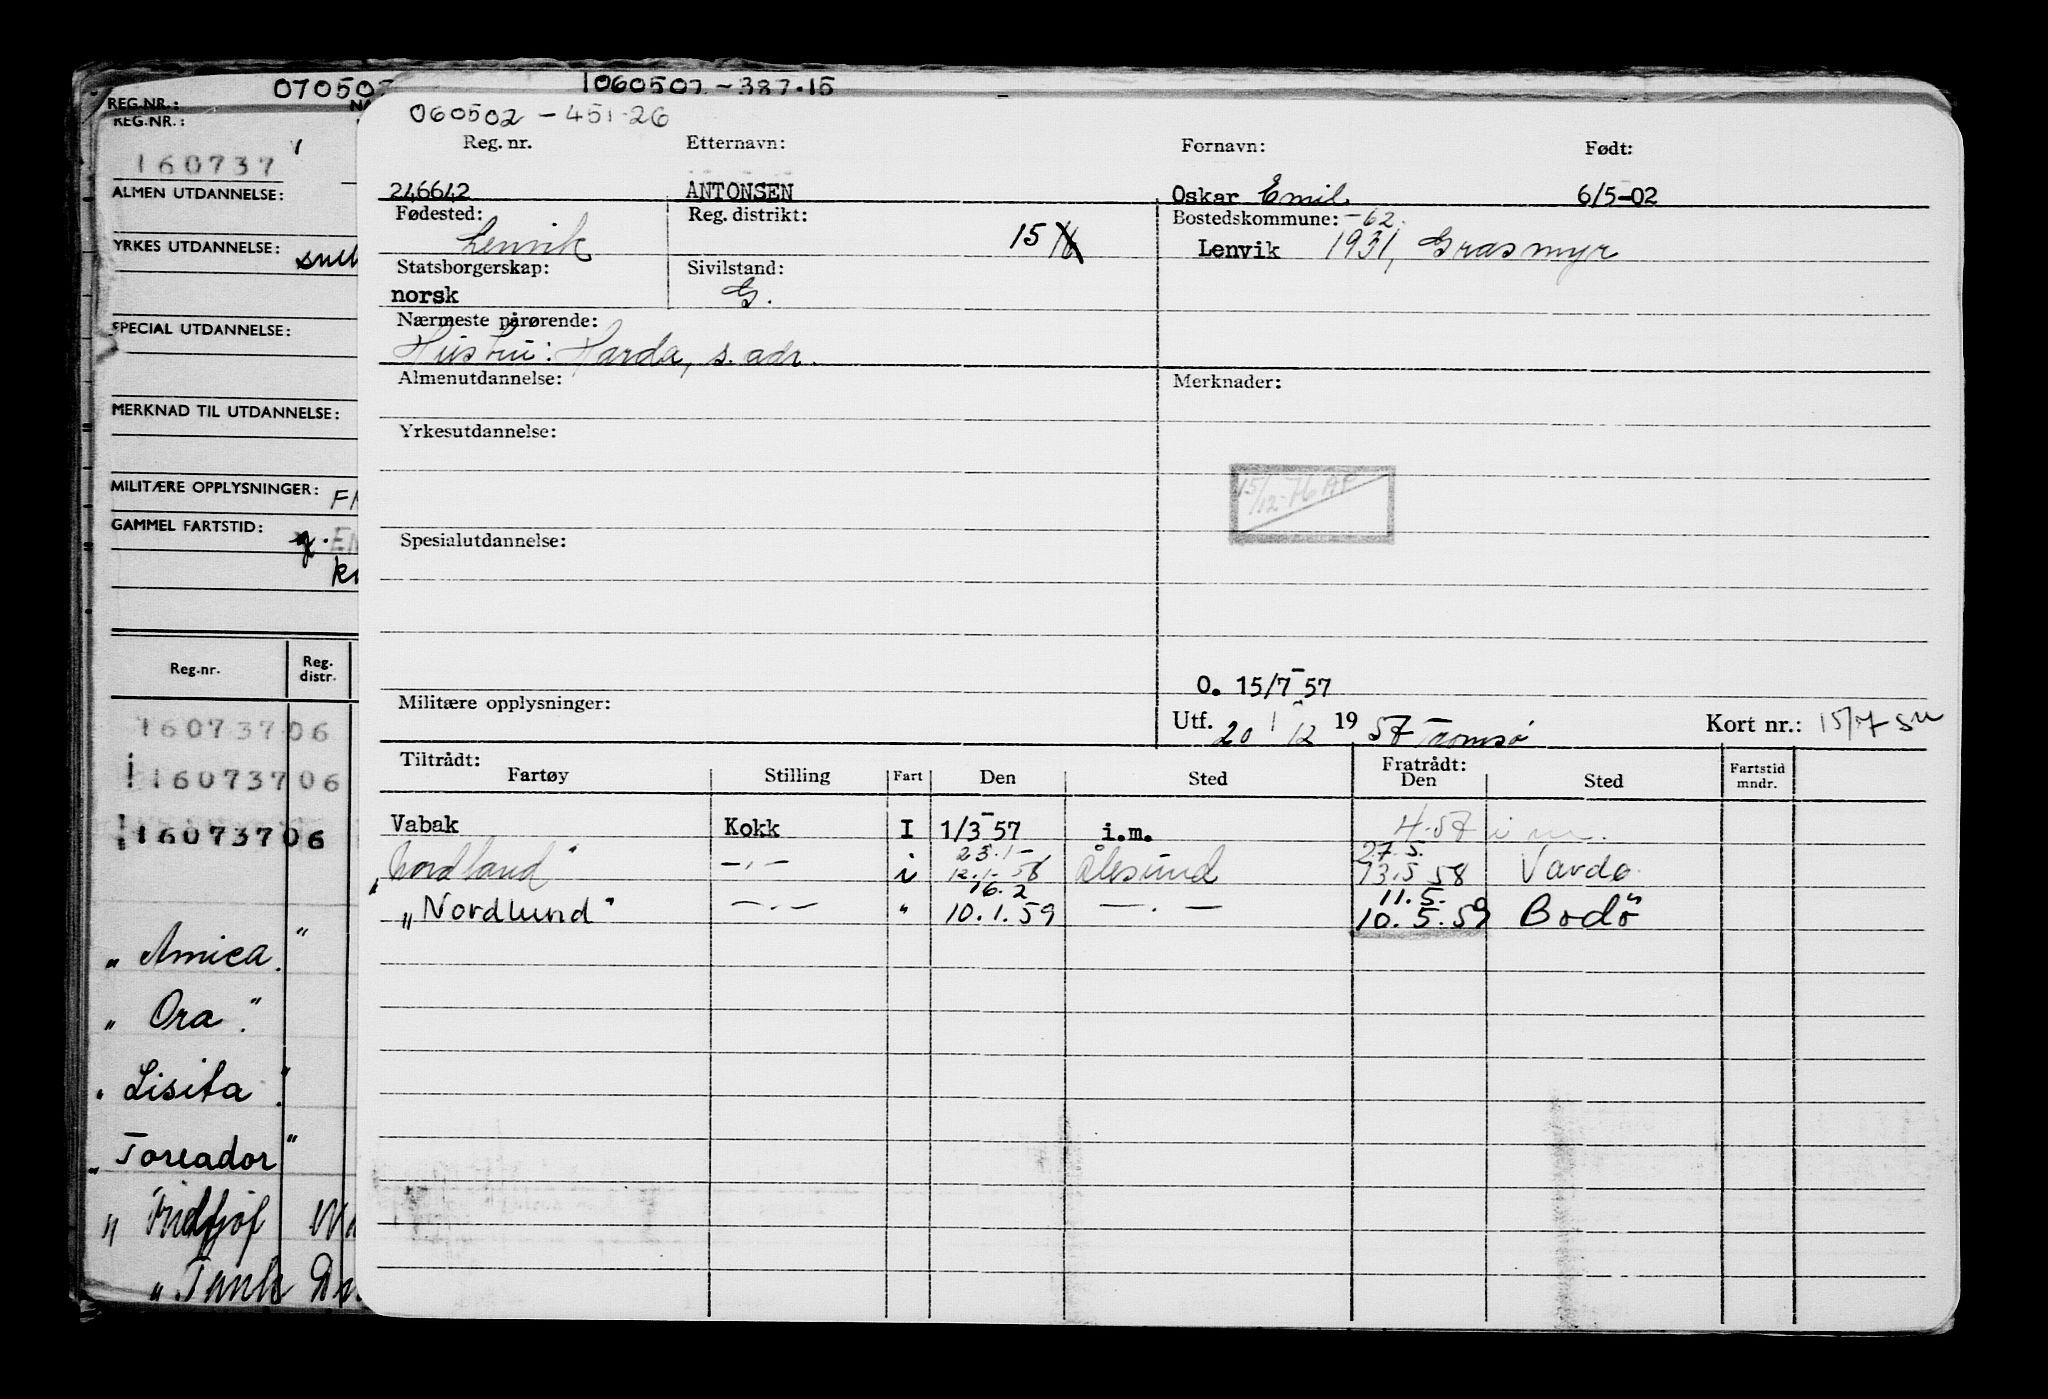 070502
1060502-387.15
REG.NR.:
REG.NR.:
160737
ALMEN UTDANNELSE:
YRKES UTDANNELSE:
SPECIAL UTDANNELSE:
MERKNAD TIL UTDANNELSE:
MILITÆRE OPPLYSNINGER:
GAMMEL FARTSTID:
Reg.nr. Reg. distr.
16073706
16073706
16073706
"Amica."
"Ora."
"Lisita."
"Toreador"
"Fridtjof
"Tank
060502-451.26
Reg. nr. Etternavn: Fornavn: Født:
246642 ANTONSEN Oskar Emil 6/5-02
Fødested: Reg. distrikt: Bostedskommune: -62.
Lenvik 15 16 Lenvik 1931, Grasmyr
Statsborgerskap: Sivilstand:
norsk G.
Nærmeste pårørende:
Hustru: Harda, s. adr.
Almenutdannelse: Merknader:
Yrkesutdannelse:
15/12-76 AP
Spesialutdannelse:
O. 15/7-57
Militære opplysninger:
Utf. 20/12 1957 Tromsø Kort nr.: 15/7 SU
Tiltrådt: Fratrådt:
Fartøy Stilling Fart Den Sted Den Sted Fartstid mndr.
Vabak Kokk I 1/3-57 i.m. 4.57 i m.
23.1- 27.5.
"Nordland" -.- i 12.1.58 Ålesund 13.5.58 Vardø
16.2 11.5.
"Nordlund" -.- " 10.1.59 -.- 10.5.59 Bodö